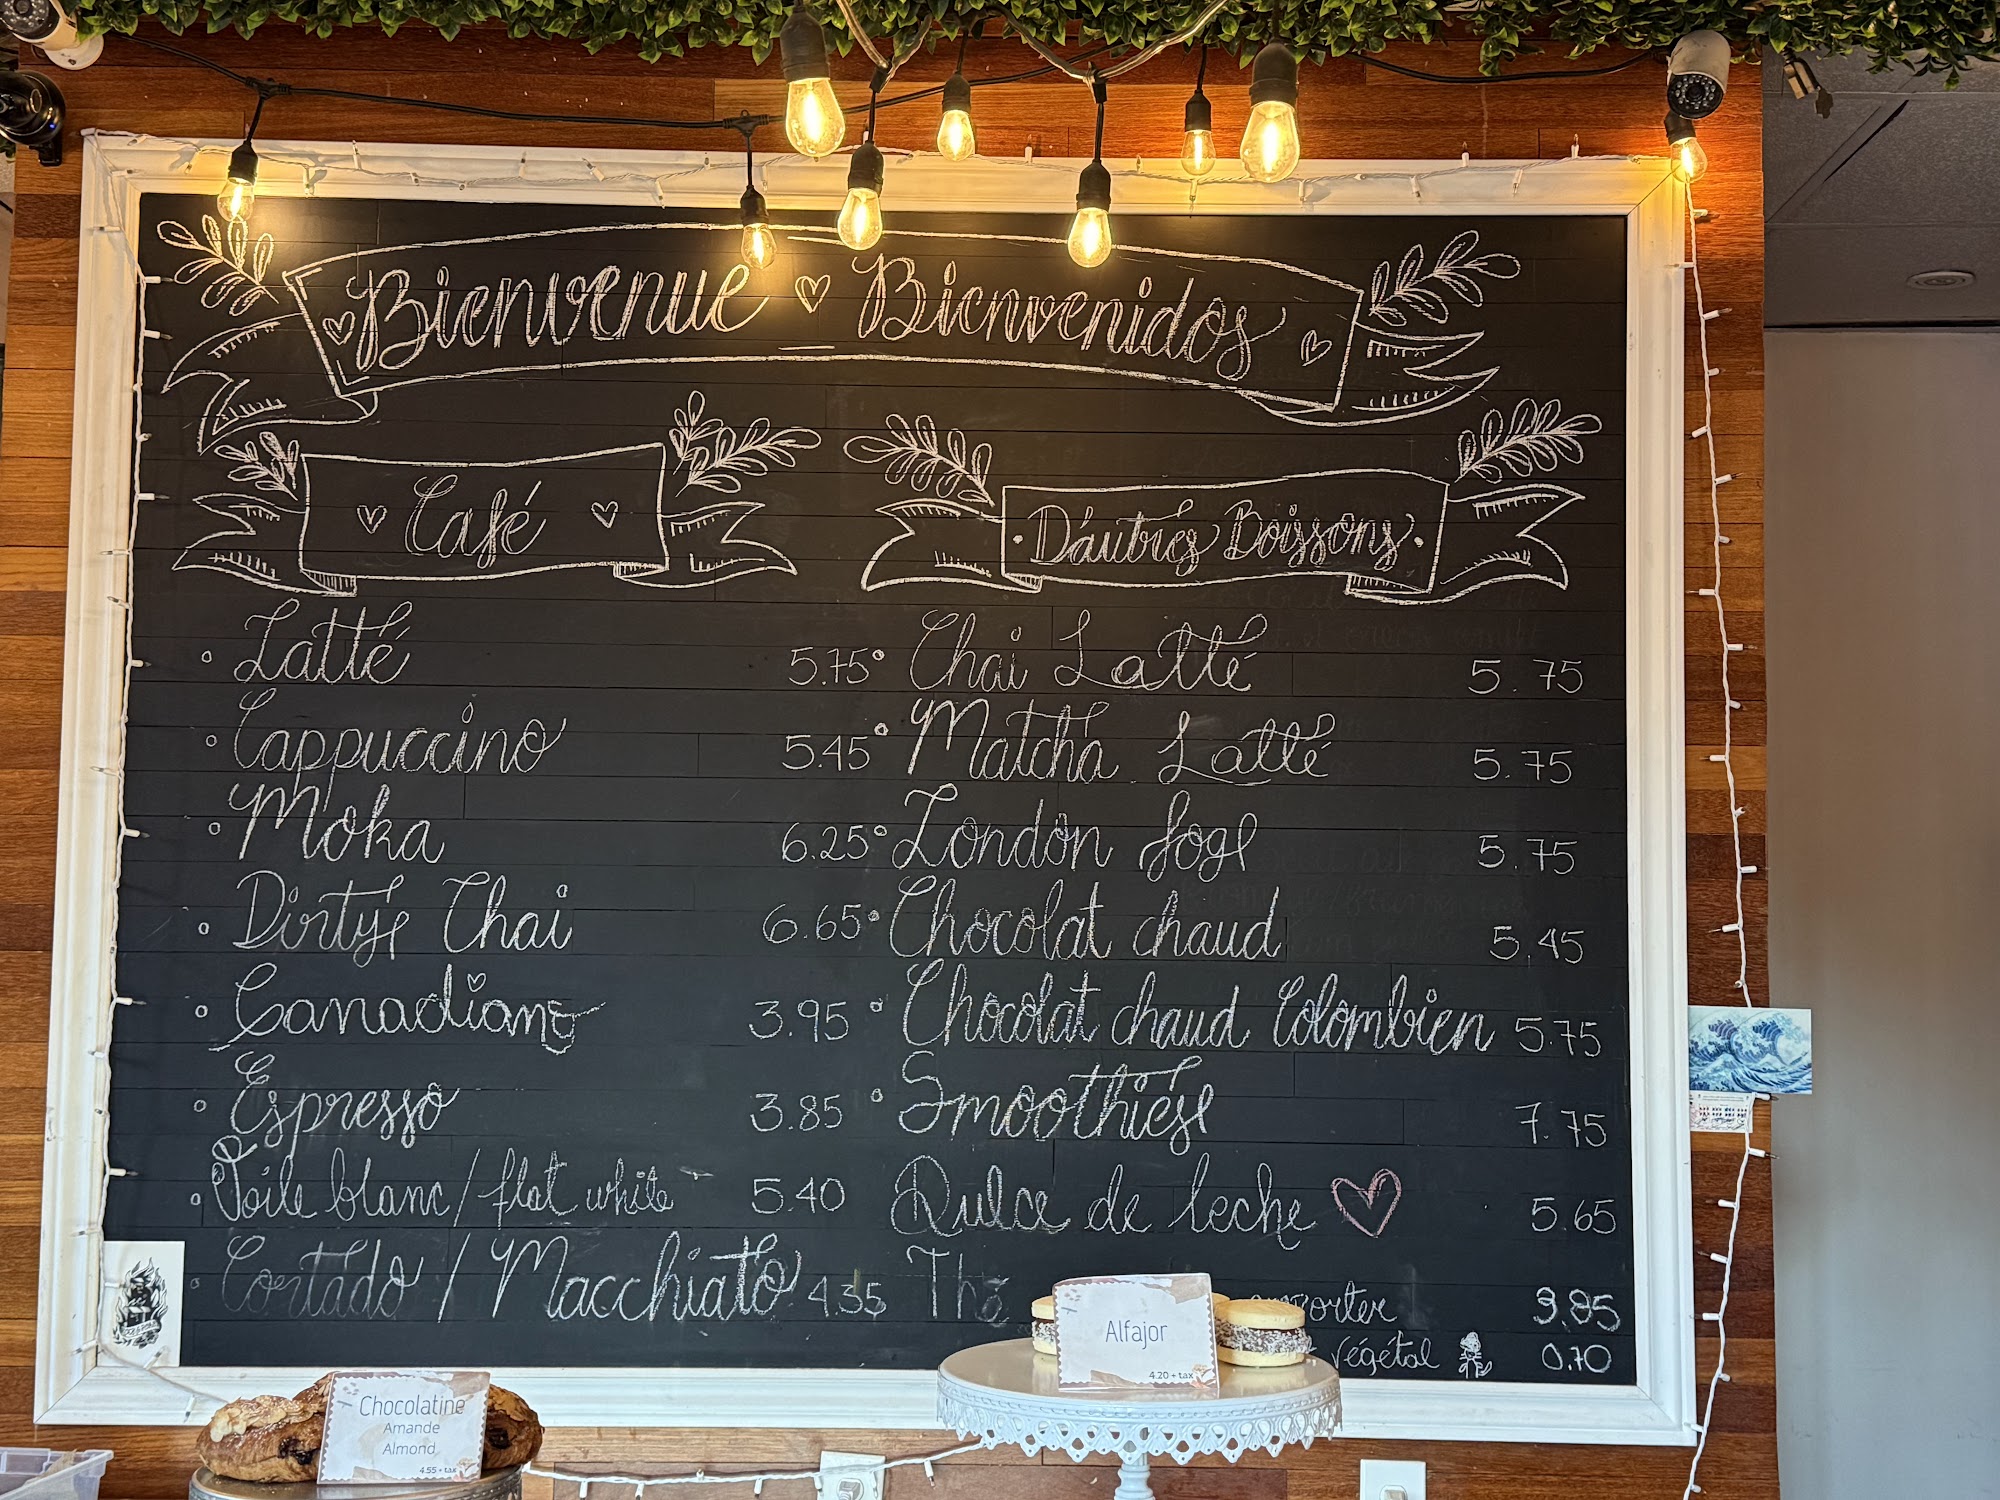 Bienvenue Bienvenidos
Café
Latté 5.75
Cappuccino 5.45
Moka 6.25
Dirty Chai 6.65
Canadiano 3.95
Espresso 3.85
Voile blanc / flat white 5.40
Cortado / Macchiato 4.35
D'autres Boissons
Chai Latté 5.75
Matcha Latté 5.75
London fog 5.75
Chocolat chaud 5.45
Chocolat chaud Colombien 5.75
Smoothies 7.75
Dulce de leche 5.65
Thé 3.85
végétal 0.70
Chocolatine
Amande
Almond
4.55 + tax
Alfajor
4.20 + tax